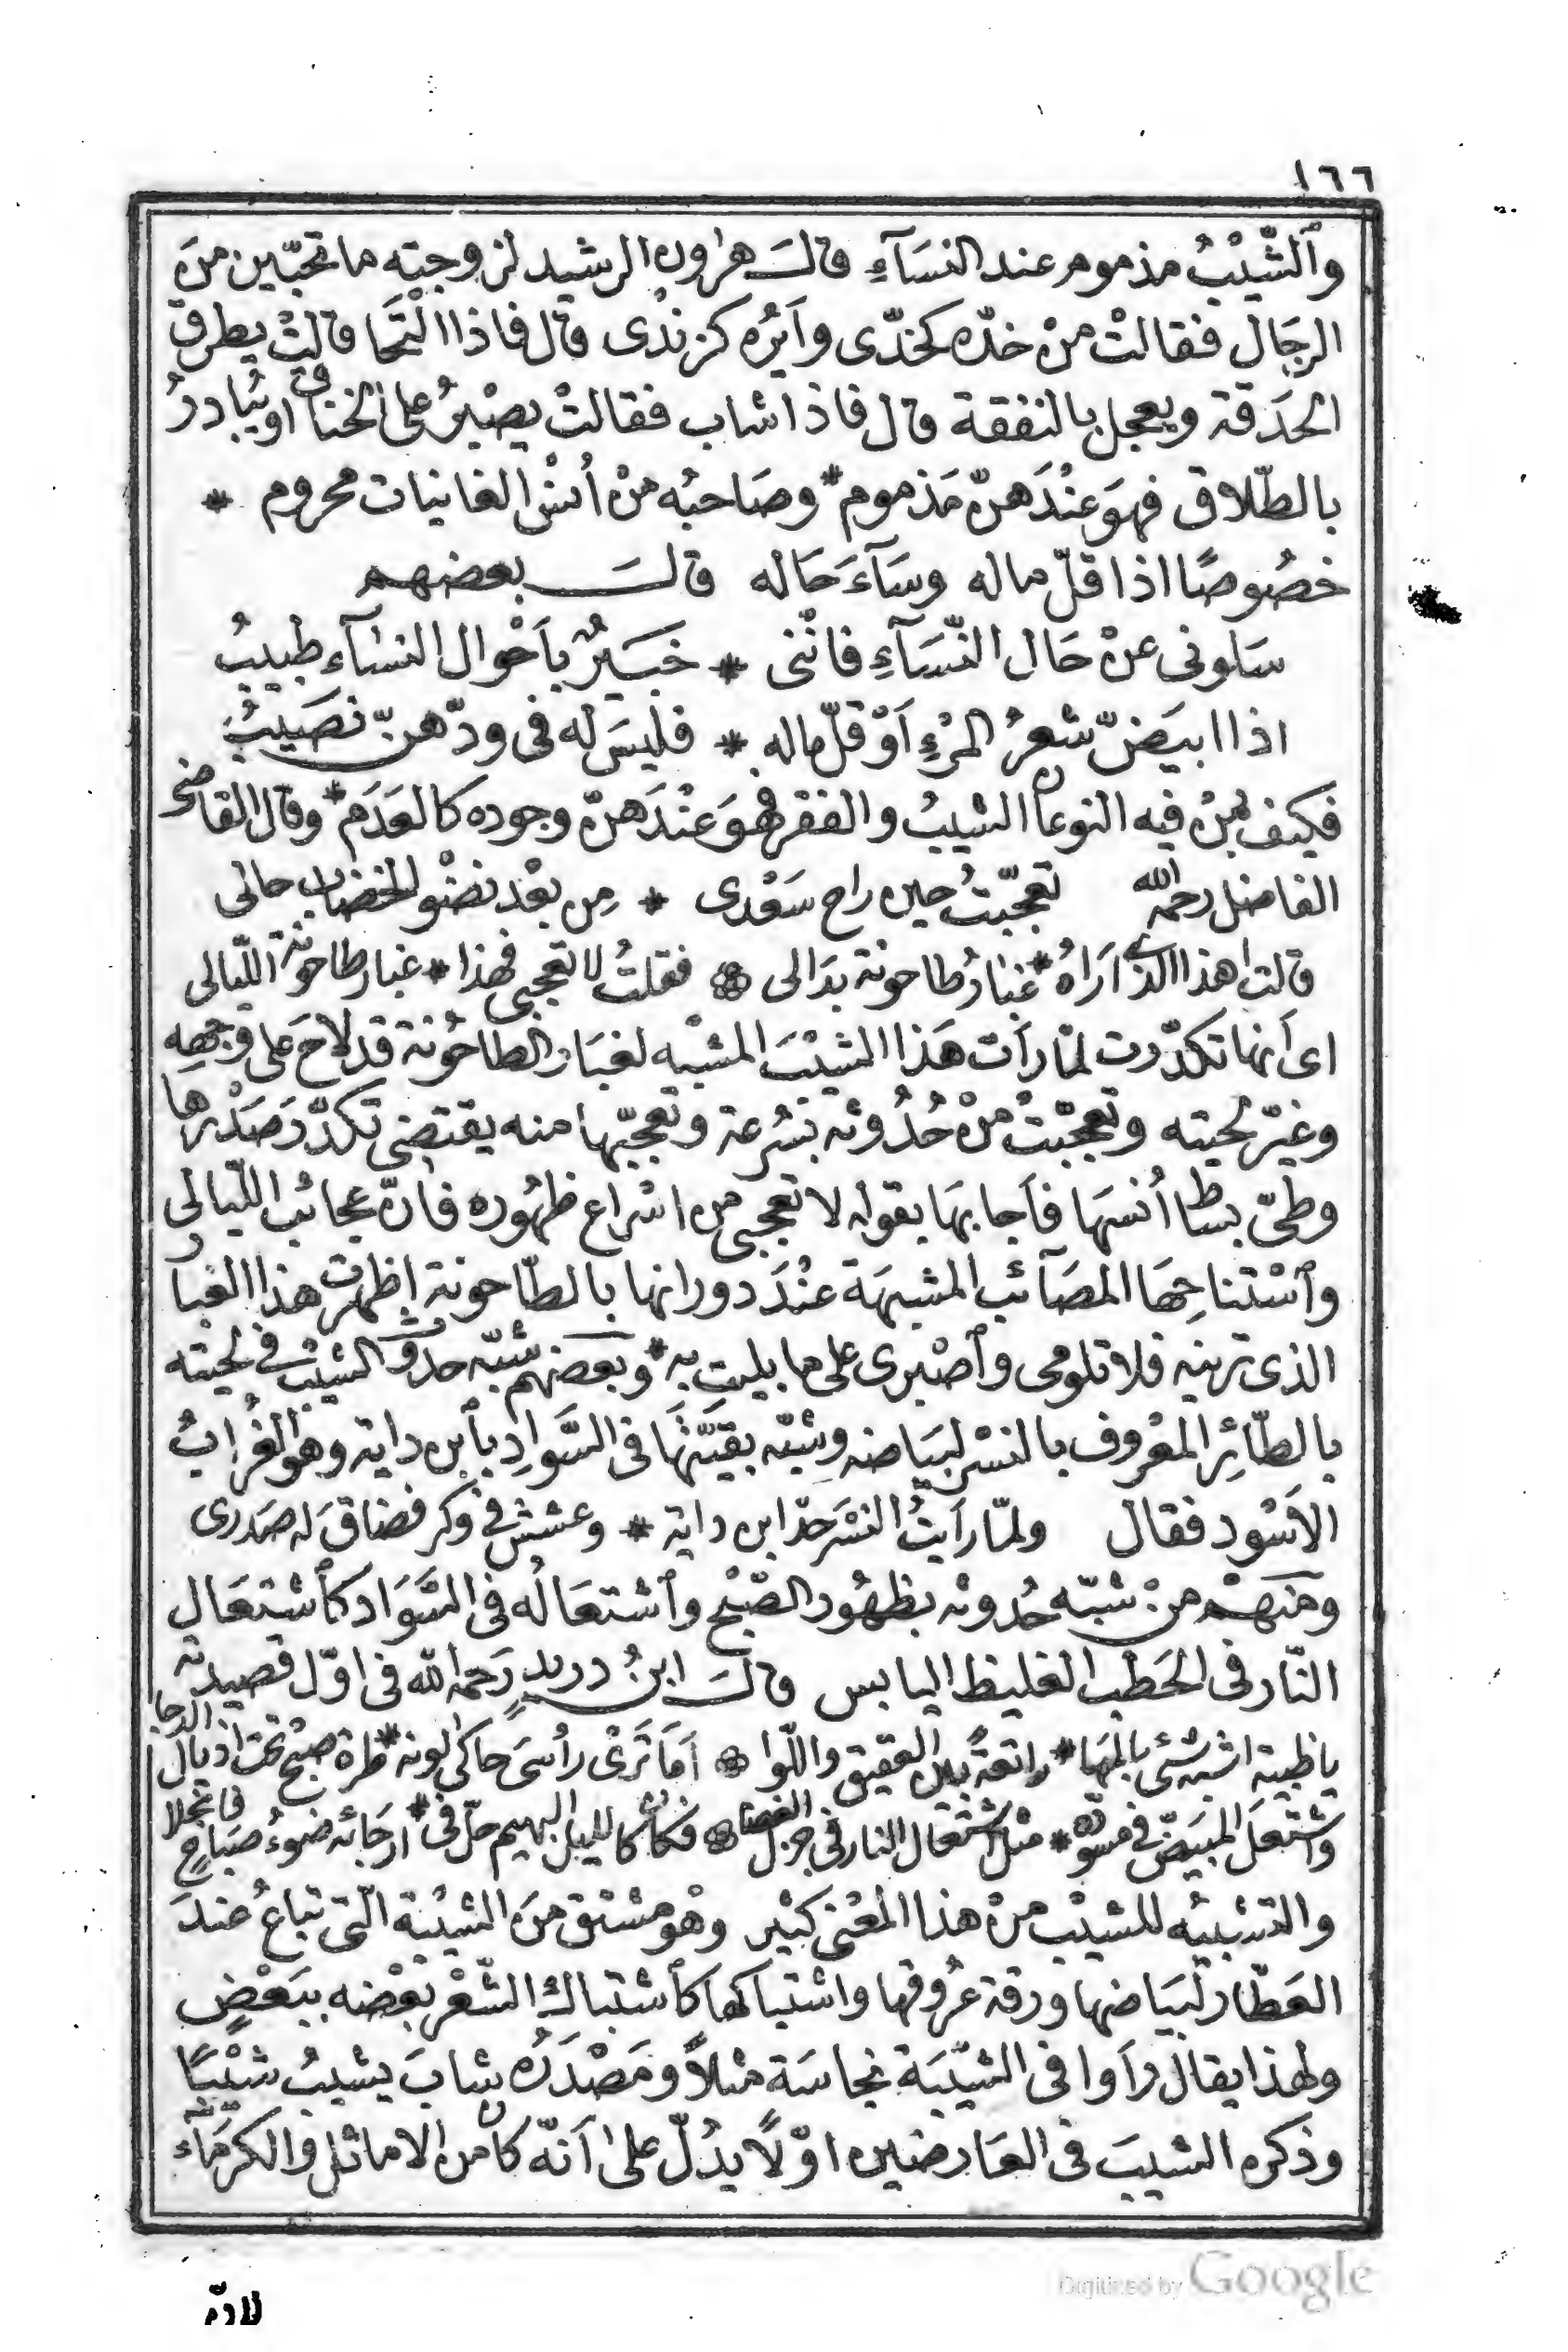 ١٦٦
وٱلشّيْبُ مذموم عند النسَآءِ قالَ هٰرون الرشيد لزوجته ما تحبّين منَ
الرجَال فقالتْ منْ خدّه كخدّى وأَيْرُه كزندْى قال فاذا الْتَحَا قالتْ يطرق
الحَدَقة ويعجل بالنفقة قال فاذا شاب فقالتْ يصْبرُ على الخناق او يُبادرُ
بالطّلاق فهوَ عنْدَهنّ مَذموم * وصَاحبُه منْ أُنسْ الغانيات محروم *
خصُوصًا اذا قلّ ماله وسَآءَ حَاله قالَ بعضهم
سَلونى عنْ حَال النّسَآءِ فانّنى * خَبيرٌ بأَحْوال النسَآء طبيبُ
اذا ابيَضّ شعرُ المرْءِ أَوْ قلّ ماله * فليسَ له فى ودّهنّ نصَيبُ
فكيْف بمنْ فيه النوعان الشيبُ والفقر فهوَ عنْدَهنّ وجوده كالعَدَم * وقال القاضى
الفاضل رحمه الله تعجّبتْ حين راح سَعْدى * مِن بعْد نضْو الخضاب حالى
قالت اهذا الذى أرَاهُ * غبارُ طاحونة بدَا لى ❁ فقلتُ لا تعجبى فهذا * غبار طاحونة اللّيالى
اى أنها تكدّرت لمّا رأت هَذا الشيْبَ المشبّه لغبَار الطاحُونة قد لاحَ على وجههِ
وغيّر لحيته وتعجّبتْ منْ حُدُوثه بسُرعة وتعجّبها منه يقتضى تكدّر صَدْرها
وطىّ بساط أُنسهَا فأجابهَا بقوله لا تعجبى من اسْراع ظهُوره فانّ عجائب اللّيالى
وٱسْتناحِهَا المصَآئب المشبهَة عنْدَ دورانها بالطّاحونة اظهرت هذا الغبار
الذى ترينه فلا تلومى وٱصْبرى على ما بليتِ به * وبعضهم شبّه حدوث الشيْب فى لحيته
بالطّائِر المعْروف بالنسْر لبيَاضه وشبّه بقيّتهَا فى السَّوادِ بٱبن داية وهو الغُرابُ
الاَسْود فقال ولمّا رَأيتُ النسْرَ حدّ ابن داية * وعشش فى وكر فضاق له صَدرى
ومنهم منْ شبّه حُدوثه بظهُور الصّبْح وٱشتعَاله فى السَّوَاد كٱشتعَال
النّار فى الحَطب الغليظ اليابس قالَ ابنُ دريدٍ رَحمه الله فى اوّل قصيدته
ياظبية اشبه شئ بالمها * راتعةً بين العقيق واللّوا ❁ أمَا تَرىْ رأسىَ حاكى لونه * طرة صبْح تحت اذيال الدجا
واشتعلَ المبيَضّ فى مسْودّه * مثل اشتعال النار فى جزل الغضا ❁ فكان كالليل البهيم حلّ فى * ارجَائه ضوءُ صبَاحٍ فانجلا
والتشبيْه للشيْب منْ هذا المعْنى كثير وهْو مشتق منَ الشيْبَة الّتى تباعُ عندَ
العَطّار لبيَاضها ورقة عرُوقها واشتباكها كٱشتباك الشّعْر بعْضه ببَعْضٍ
ولهذا يقال رأوا فى الشيّبَة نجاسَة مثلاً ومَصْدَرُه شابَ يشيبُ شيْبًا
وذكره الشيبَ فى العَارضين اوّلاً يدُلّ على أنّه كان من الاماثل والكرمَآء
Digitized by Google
لانّه